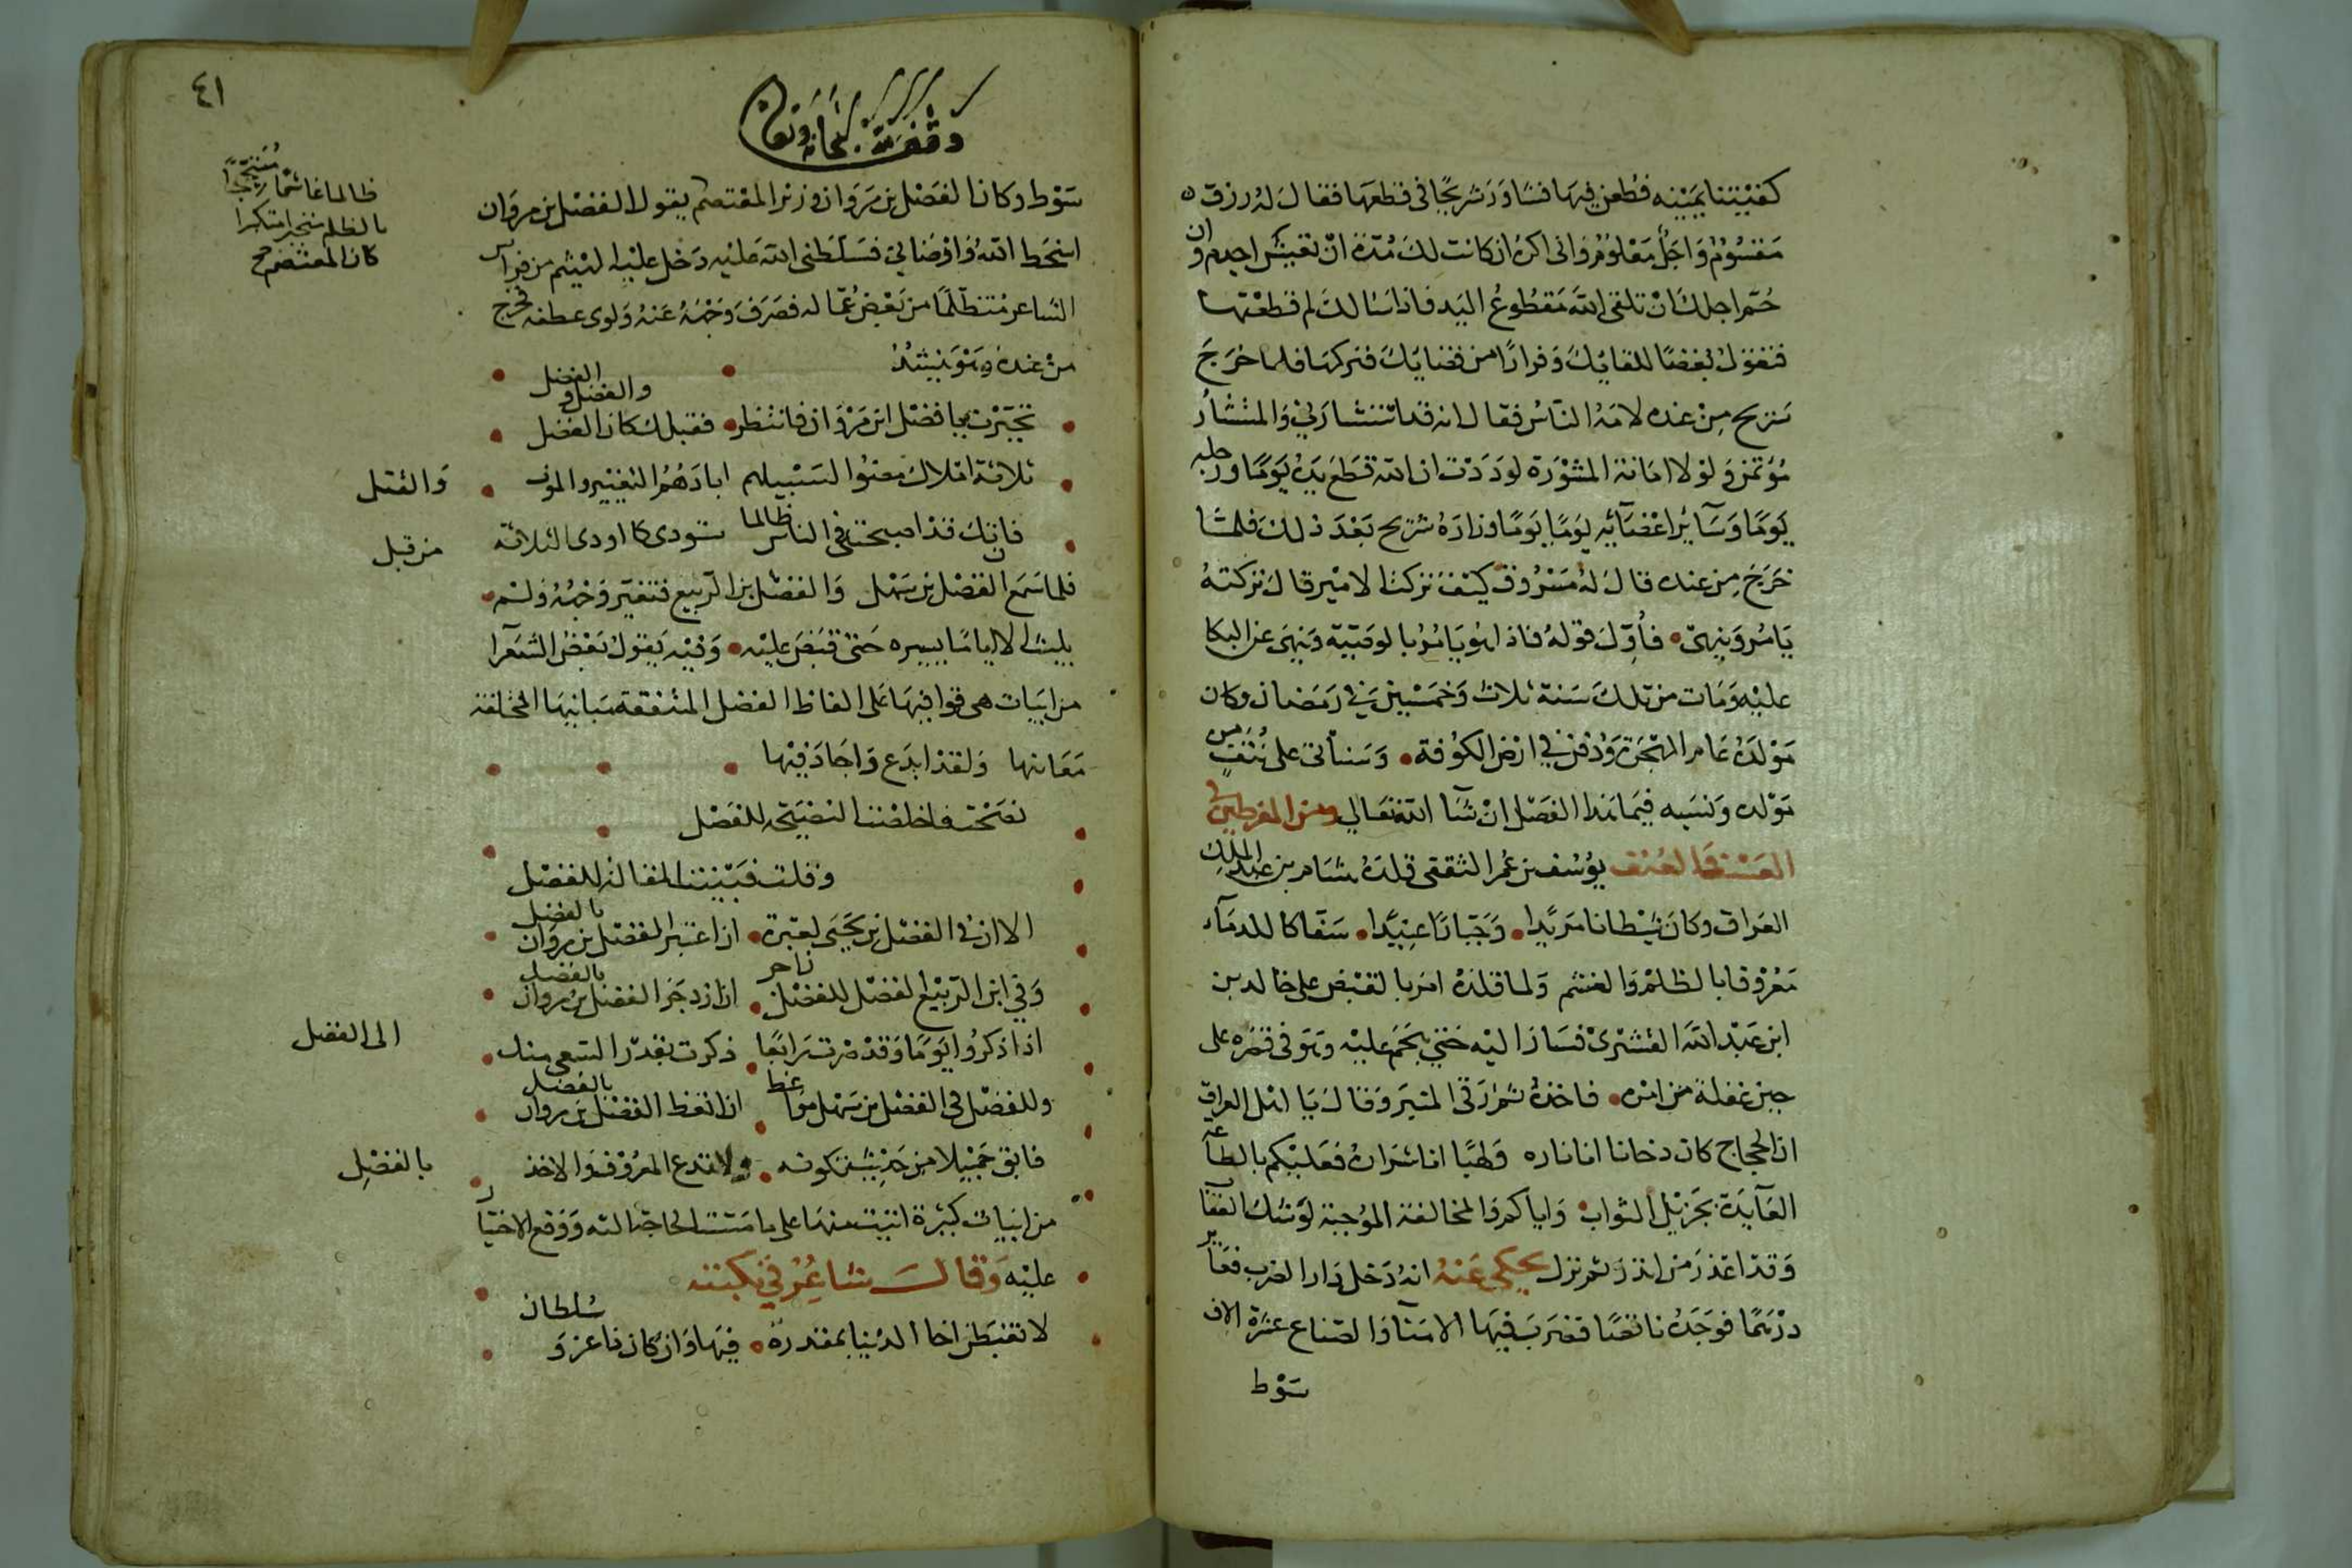 كفيتنا يمينه فطعن فيها فشاور شريحا في قطعها فقال له رزق
مقسوم واجل معلوم واني اكره ان كانت لك مدة ان تعيش اجذم وان
حم اجلك ان تلقى الله مقطوع اليد فاذا سالك لم قطعتها
فتقول بغضا للقايك وفرارا من قضايك فتركها فلما خرج
شريح من عنده لامه الناس فقال انه قد استشارني والمستشار
مؤتمن ولولا امانة المشورة لوددت ان الله قطع يده يوما ورجله
يوما وساير اعضآيه يوما يوما وزاره شريح بعد ذلك فلما
خرج من عنده قال له مسروق كيف تركت الامير قال تركته
يامر وينهى فأول قوله فاذا هو يامر بالوصية وينهى عن البكا
عليه ومات من تلك سنة ثلاث وخمسين في رمضان وكان
مولده عام الهجرة ودفن في ارض الكوفة وسناتى على نتف من
مولده ونسبه فيما هذا الفصل ان شآ الله تعالى ومن المفرطين في
العسف والعنف يوسف بن عمر الثقفى قلده هشام بن عبد الملك
العراق وكان شيطانا مريدا وجبارا عنيدا سفاكا للدمآء
معروفا بالظلم والغشم ولما قلده امره بالقبض على خالد بن
ابن عبد الله القشرى فسار اليه حتى هجم عليه وهو في قصره على
حين غفلة من امره فاخذه ثم رقى المنبر وقال يا اهل العراق
ان الحجاج كان دخانا انا ناره ولهبا انا شراره فعليكم بالطاعة
العآيدة بجزيل الثواب واياكم والمخالفة الموجبة لوشك العقاب
وقد اعذر من انذر ثم نزل يحكى عنه انه دخل دار الضرب فعاير
درهما فوجده ناقصا فضرب فيها الامنآ والصناع عشرة الاف
سوط
٤١
سوط وكان الفضل بن مروان وزير المعتصم يقول الفضل بن مروان
ظالما غاشما
بالظلم متكبرا
كان المعتصم صح
اسخط الله وارضاني فسلطني الله عليه دخل عليه الهيثم من فراس
الشاعر متظلما من بعض عماله فصرف وجهه عنه ولوى عطفه فخرج
من عنده وهو ينشد
تجبرت يا فضل ابن مروان فانتظر فقبلك كان الفضل والفضل والفضل
ثلاثة املاك مضوا لسبيلهم ابادهم التغيير والموت والقتل
فانك قد اصبحت في الناس ظالما ستودى كما اودى الثلاثة من قبل
فلما سمع الفضل بن سهل والفضل بن الربيع فتغير وجهه ولم
يلبث الا اياما يسيره حتى قبض عليه وفيه يقول بعض الشعرآ
من ابيات هى قوافيها على الفاظ الفضل المتفقة مبانيها المختلفة
معانيها ولقد ابدع واجاد فيها
نصحت فاخلصت النصيحة للفضل
وقلت فبينت المقالة للفضل
الا ان في الفضل بن يحيى لعبرة اذا اعتبر الفضل بن مروان بالفضل
وفي ابن الربيع الفضل للفضل زاجر اذا ازدجر الفضل بن مروان بالفضل
اذا ذكروا يوما وقد صرت رابعا ذكرت بقدر السعى منك الى الفضل
وللفضل في الفضل بن سهل مواعظ اذا اتعظ الفضل بن مروان بالفضل
فابق جميلا من حديث تكونه ولا تدع المعروف والاخذ بالفضل
من ابيات كثيرة اتيت منها على ما مست الحاجة اليه ووقع الاختيار
عليه وقال شاعر في نكبته
لا تغبطن اخا الدنيا بمقدرة فيها وان كان ذا عز وسلطان